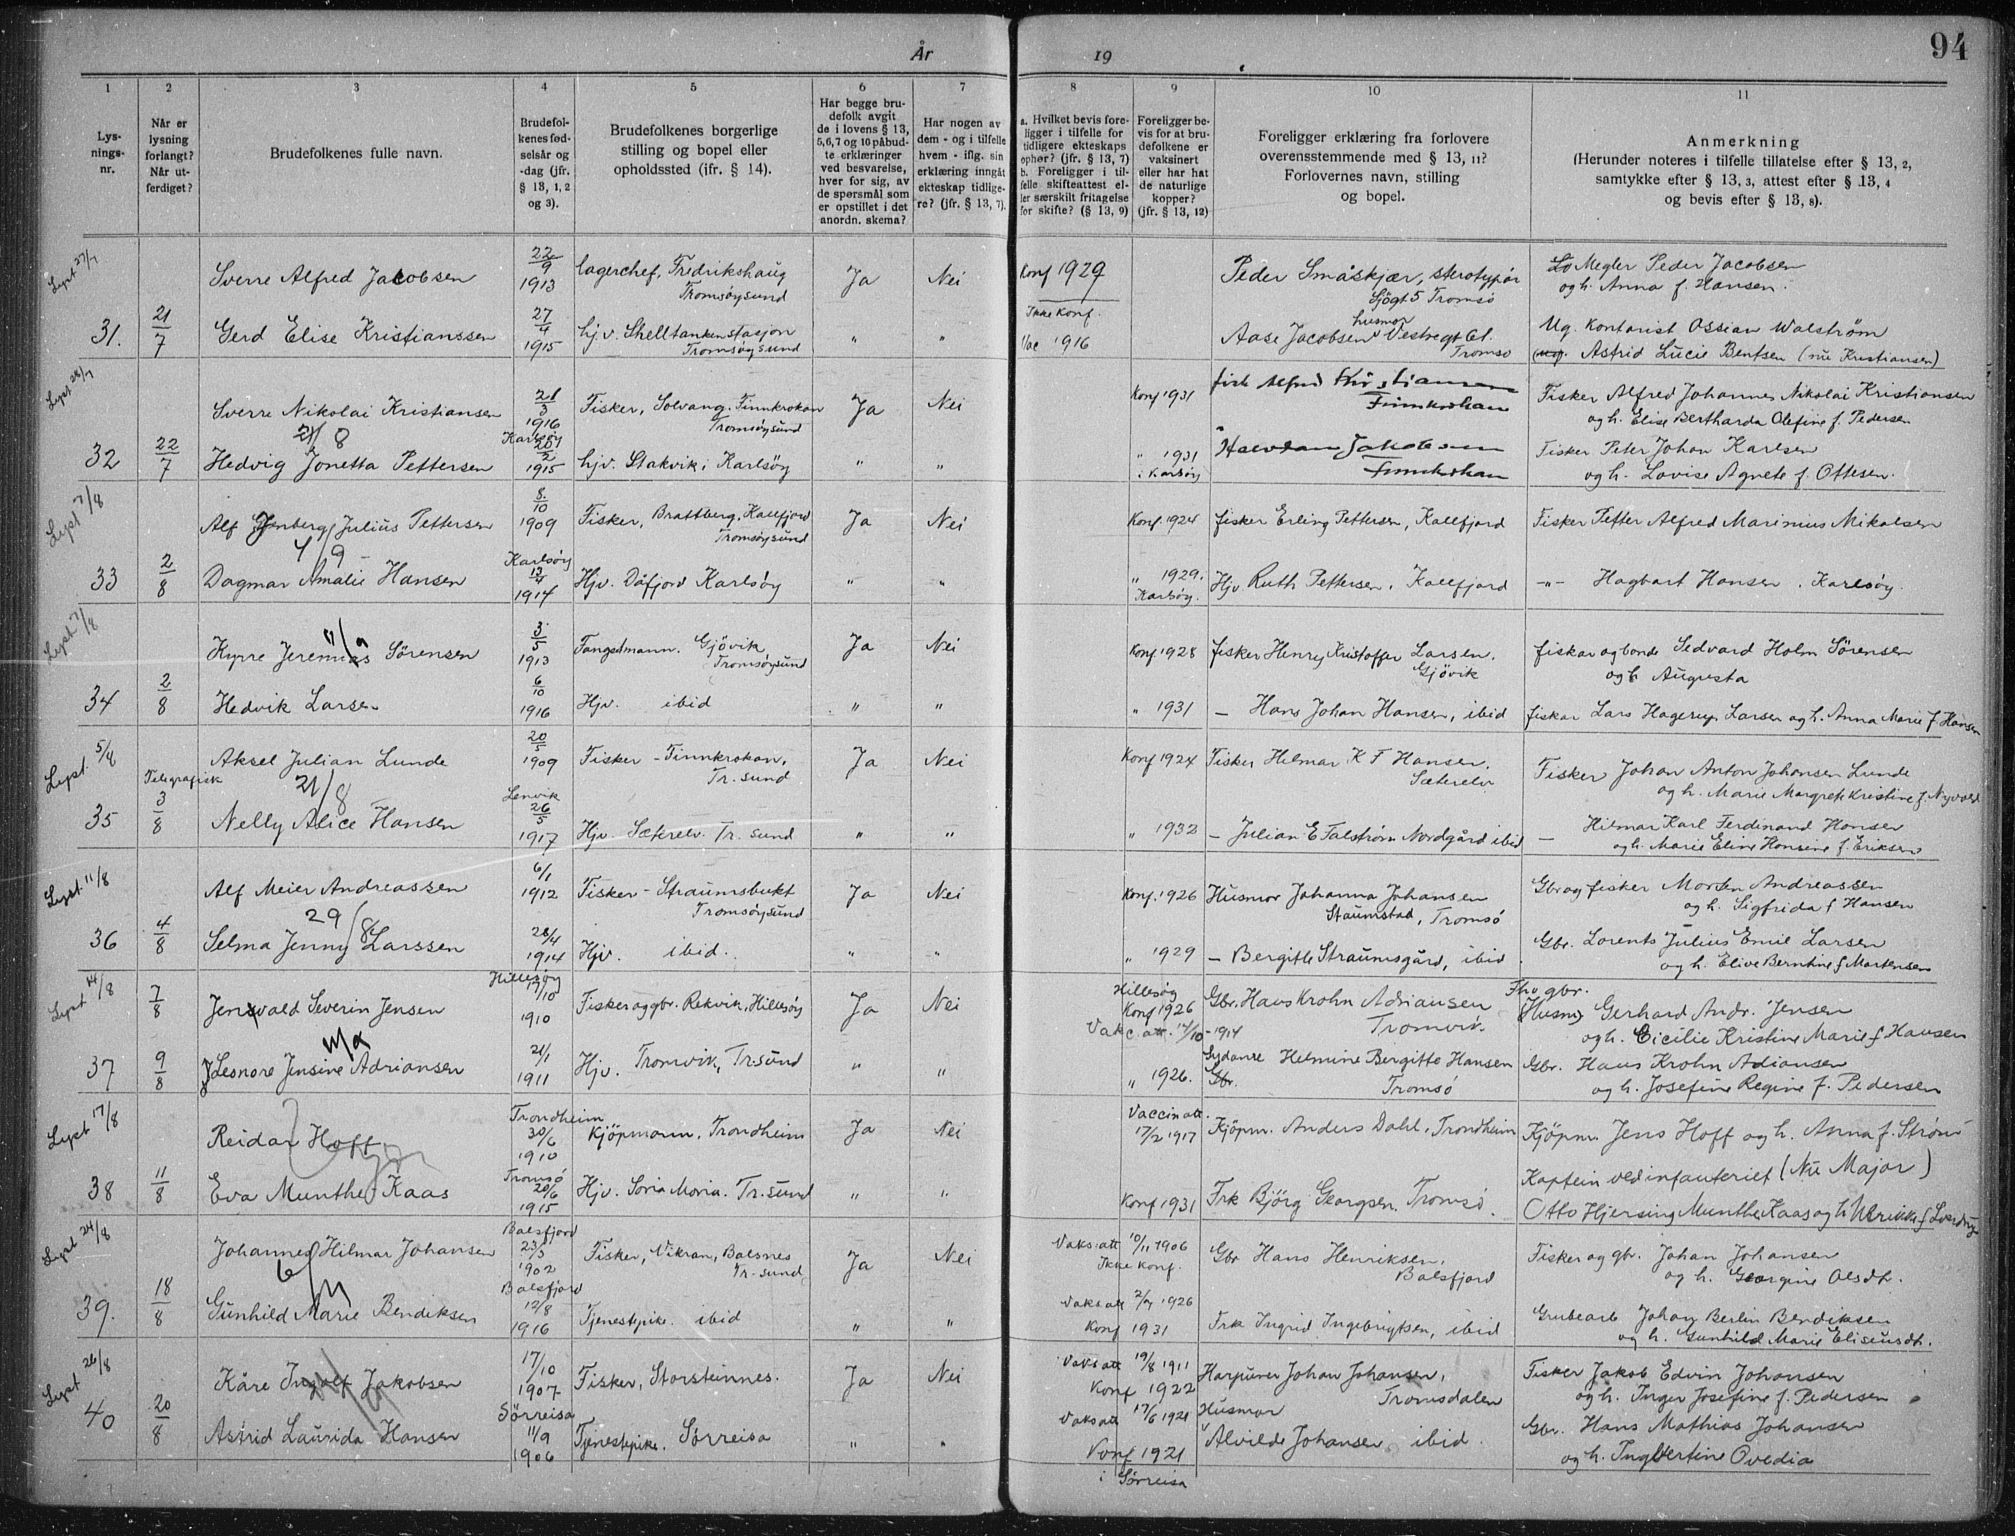 År 19
94
1 2 3 4 5 6 7 8 9 10 11
Lys-
nings-
nr.
Når er
lysning
forlangt?
Når ut-
ferdiget?
Brudefolkenes fulle navn.
Brudefol-
kenes fød-
selsår og
-dag (jfr.
§ 13, 1, 2
og 3).
Brudefolkenes borgerlige
stilling og bopel eller
opholdssted (ifr. § 14).
Har begge bru-
defolk avgit
de i lovens § 13,
5, 6, 7 og 10 påbud-
te erklæringer
ved besvarelse,
hver for sig, av
de spørsmål som
er opstillet i det
anordn. skema?
Har nogen av
dem - og i tilfelle
hvem - iflg. sin
erklæring inngåt
ekteskap tidlige-
re? (jfr. § 13, 7).
a. Hvilket bevis fore-
ligger i tilfelle for
tidligere ekteskaps
ophør? (jfr. § 13, 7)
b. Foreligger i til-
felle skifteattest el-
ler særskilt fritagelse
for skifte? (§ 13, 9)
Foreligger be-
vis for at bru-
defolkene er
vaksinert
eller har hat
de naturlige
kopper?
(jfr. § 13, 12)
Foreligger erklæring fra forlovere
overensstemmende med § 13, 11?
Forlovernes navn, stilling
og bopel.
Anmerkning
(Herunder noteres i tilfelle tillatelse efter § 13, 2,
samtykke efter § 13, 3, attest efter § 13, 4
og bevis efter § 13, 8).
Lyst 27/7
Sverre Alfred Jacobsen 22/9 1913 lagerchef, Fredrikshaug Tromsøysund Ja Nei Konf 1929 Peder Småskjær, sterotypør Sjøgt 5 Tromsø Megler Peder Jacobsen
og h. Anna f. Hansen.
31. 21/7 Gerd Elise Kristianssen 27/4 1915 hjv. Shelltankenstasjon Tromsøysund " " Ikke Konf. Vac 1916 Aase Jacobsen husmor Vestregt 61. Tromsø Ug. Kontorist Ossian Walstrøm
(ug. Astrid Lucie Bentsen (nu Kristiansen)
Lyst 28/7
Sverre Nikolai Kristiansen 21/3 1916 Fisker, Solvang, Finnkroken Tromsøysund Ja Nei Konf 1931 fisk Alfred Kristiansen Finnkroken Fisker Alfred Johannes Nikolai Kristiansen
og h. Elise Bertharda Olefine f. Pedersen
21/8
32 22/7 Hedvig Jonetta Pettersen Karlsøy 20/2 1915 hjv. Stakvik i Karlsøy " " " 1931 i Karlsøy Halvdan Jakobsen Finnkroken Fisker Peter Johan Karlsen
og h. Lovise Agnete f. Ottesen.
Lyst 7/8
Alf Jenberg Julius Pettersen 8/10 1909 Fisker, Brattberg, Kallfjord Tromsøysund Ja Nei Konf. 1924 fisker Erling Pettersen, Kallfjord Fisker Petter Alfred Marinius Nikolsen
4/9
33 2/8 Dagmar Amalie Hansen Karlsøy 13/4 1914 Hjv. Dåfjord Karlsøy " " " 1929. Karlsøy. Hjv. Ruth Pettersen, Kallfjord -"- Hagbart Hansen, Karlsøy.
Lyst 7/8
Kyrre Jeremias Sørensen 3/5 1913 Fangstmann. Gjøvik Tromsøysund Ja Nei Konf 1928 fisker Henry Kristoffer Larsen. Gjøvik fisker og bonde Sedvard Holm Sørensen
og h Augusta
11/9
34 2/8 Hedvik Larsen 6/10 1916 Hjv. ibid " " " 1931 - Hans Johan Hansen, ibid fisker Lars Hagerup Larsen og h. Anna Marie f Hansen
Lyst. 5/8
Aksel Julian Lunde 20/5 1909 Fisker - Finnkroken, Tr. sund Ja Nei Konf 1924 Fisker Hilmar K F Hansen. Sæterelv Fisker Johan Anton Johansen Lunde
og h. Marie Margrete Kristine f. Nyvold
Telegrafisk
21/8
35 3/8 Nelly Alice Hansen Lenvik 26/5 1917 Hjv. Sæterelv. Tr. sund " " " 1932 - Julian E Falstrøm Nordgård ibid - Hilmar Karl Ferdinand Hansen
og h. Marie Eline Hansine f. Eriksen
Lyst. 11/8
Alf Meier Andreassen 6/1 1912 Fisker - Straumsbukt Tromsøysund Ja Nei Konf. 1926 Husmor Johanna Johansen Staumstad, Tromsø Gbr og fisker Morten Andreassen
og h. Sigfrida f Hansen
29/8
36 4/8 Selma Jenny Larssen 28/4 1914 Hjv. ibid. " " " 1929 - Bergitte Straumsgård, ibid Gbr. Lorents Julius Emil Larsen
og h. Elive Berntine f Mortensen
Lyst 14/8
7/8 Jensvald Severin Jensen Hillesøy 17/10 1910 Fisker og gbr. Rekvik, Hillesøy Ja Nei Hillesøy Konf 1926 Vakc. att. 14/10-1914 Gbr. Hans Krohn Adriansen Tromvik Fhv gbr.
Gerhard Andr. Jensen
og h. Cicilie Kristine Marie f Hansen
37 9/8 Lesnore Jensine Adriansen 21/1 1911 Hjv. Tromvik, Tr. sund " " " 1926. Sydame Helmine Bergitte Hansen Tromsø Gbr. Hans Krohn Adriansen
og h. Josefine Regine f. Pedersen
Lyst 17/8
Reidar Hoff Trondheim 30/6 1910 Kjøpmann, Trondheim Ja Nei Vaccin att. 17/2 1917 Kjøpm. Anders Dahl, Trondheim Kjøpm. Jens Hoff og h. Anna f. Strøm
38 11/8 Eva Munthe Kaas Tromsø 20/6 1915 Hjv. Soria Moria. Tr. sund " " Konf 1931 Frk Bjørg Georgsen, Tromsø. Kaptein ved infanteriet (Nu Major)
Otto Hjersing Munthe Kaas og h Ulrikke f Lverdrup
Lyst 24/8
Johannes Hilmar Johansen Balsfjord 23/3 1902 Fisker, Vikran, Balsnes Tr. sund Ja Nei Vaks. att 10/11 1906 Ikke konf. Gbr Hans Henriksen, Balsfjord Fisker og gbr. Johan Johansen
og h. Georgine Olsdtr.
39. 18/8 Gunhild Marie Bendiksen Balsfjord 12/8 1916 Tjenestepike. ibid " " Vaks att 2/7 1926 Konf 1931 Frk Ingrid Ingebrigtsen, ibid Grubearb Johan Berlin Bendiksen
og h. Gunhild Marie Eliseusdtr.
Lyst 26/8
Kåre Ingolf Jakobsen 17/10 1907 Fisker, Storsteinnes. Ja Nei Vaks att 19/8 1911 Konf 1922 Harpuner Johan Johansen, Tromsdalen Fisker Jakob Edvin Johansen
og h. Inger Josefine f. Pedersen
40 20/8 Astrid Laurida Hansen Sørreisa 11/9 1906 Tjenestepike. Sørreisa " " Vaks att 17/6 1921 Konf 1921 i Sørreisa Husmor Alvilde Johansen ibid. Gbr. Hans Mathias Johansen
og h. Ingbertine Ovedia